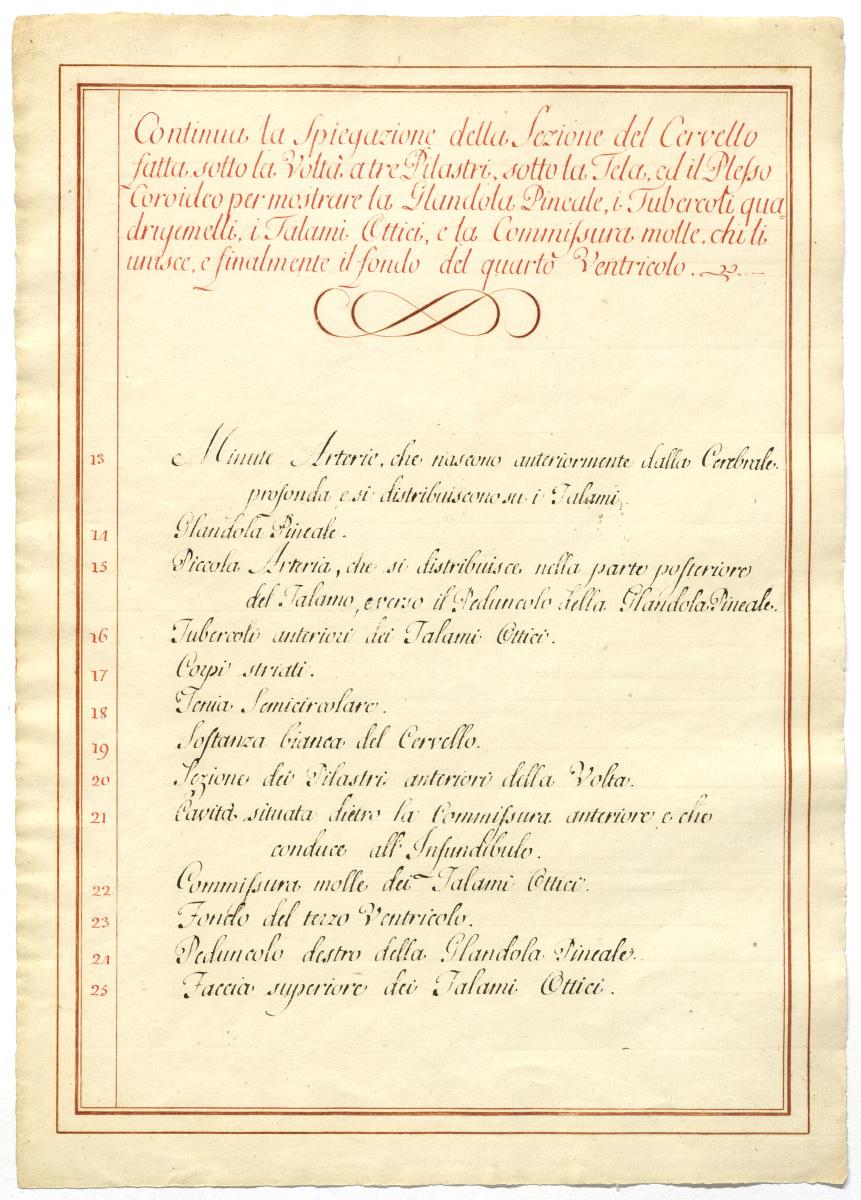 Continua la Spiegazione della Sezione del Cervello
fatta sotto la Volta a tre Pilastri, sotto la Tela, ed il Plesso
Coroideo per mostrare la Glandola Pineale, i Tubercoli qua
drigemelli, i Talami Ottici, e la Commissura molle, chi li
unisce, e finalmente il fondo del quarto Ventricolo.
13 Minute Arterie, che nascono anteriormente dalla Cerebrale
profonda e si distribuiscono su i Talami.
14 Glandola Pineale.
15 Piccola Arteria, che si distribuisce nella parte posteriore
del Talamo, e verso il Peduncolo della Glandola Pineale.
16 Tubercoli anteriori dei Talami Ottici.
17 Corpi striati.
18 Tenia Semicircolare.
19 Sostanza bianca del Cervello.
20 Sezione dei Pilastri anteriori della Volta.
21 Cavità situata dietro la Commissura anteriore, e che
conduce all' Infundibulo.
22 Commissura molle dei Talami Ottici.
23 Fondo del terzo Ventricolo.
24 Peduncolo destro della Glandola Pineale.
25 Faccia superiore dei Talami Ottici.